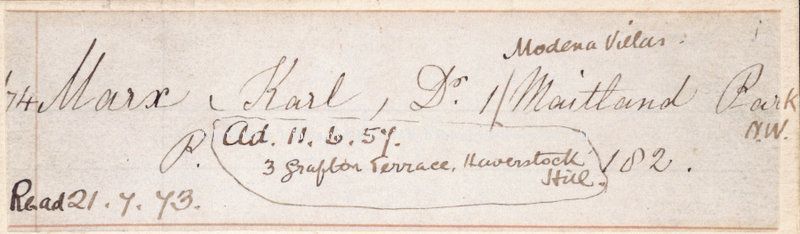 Modena Villas.
74 Marx, Karl, Dr. 1 Maitland Park
N.W.
P. Ad. 11. 6. 57. 182.
3 Grafton Terrace, Haverstock
Hill.
Read 21. 7. 73.